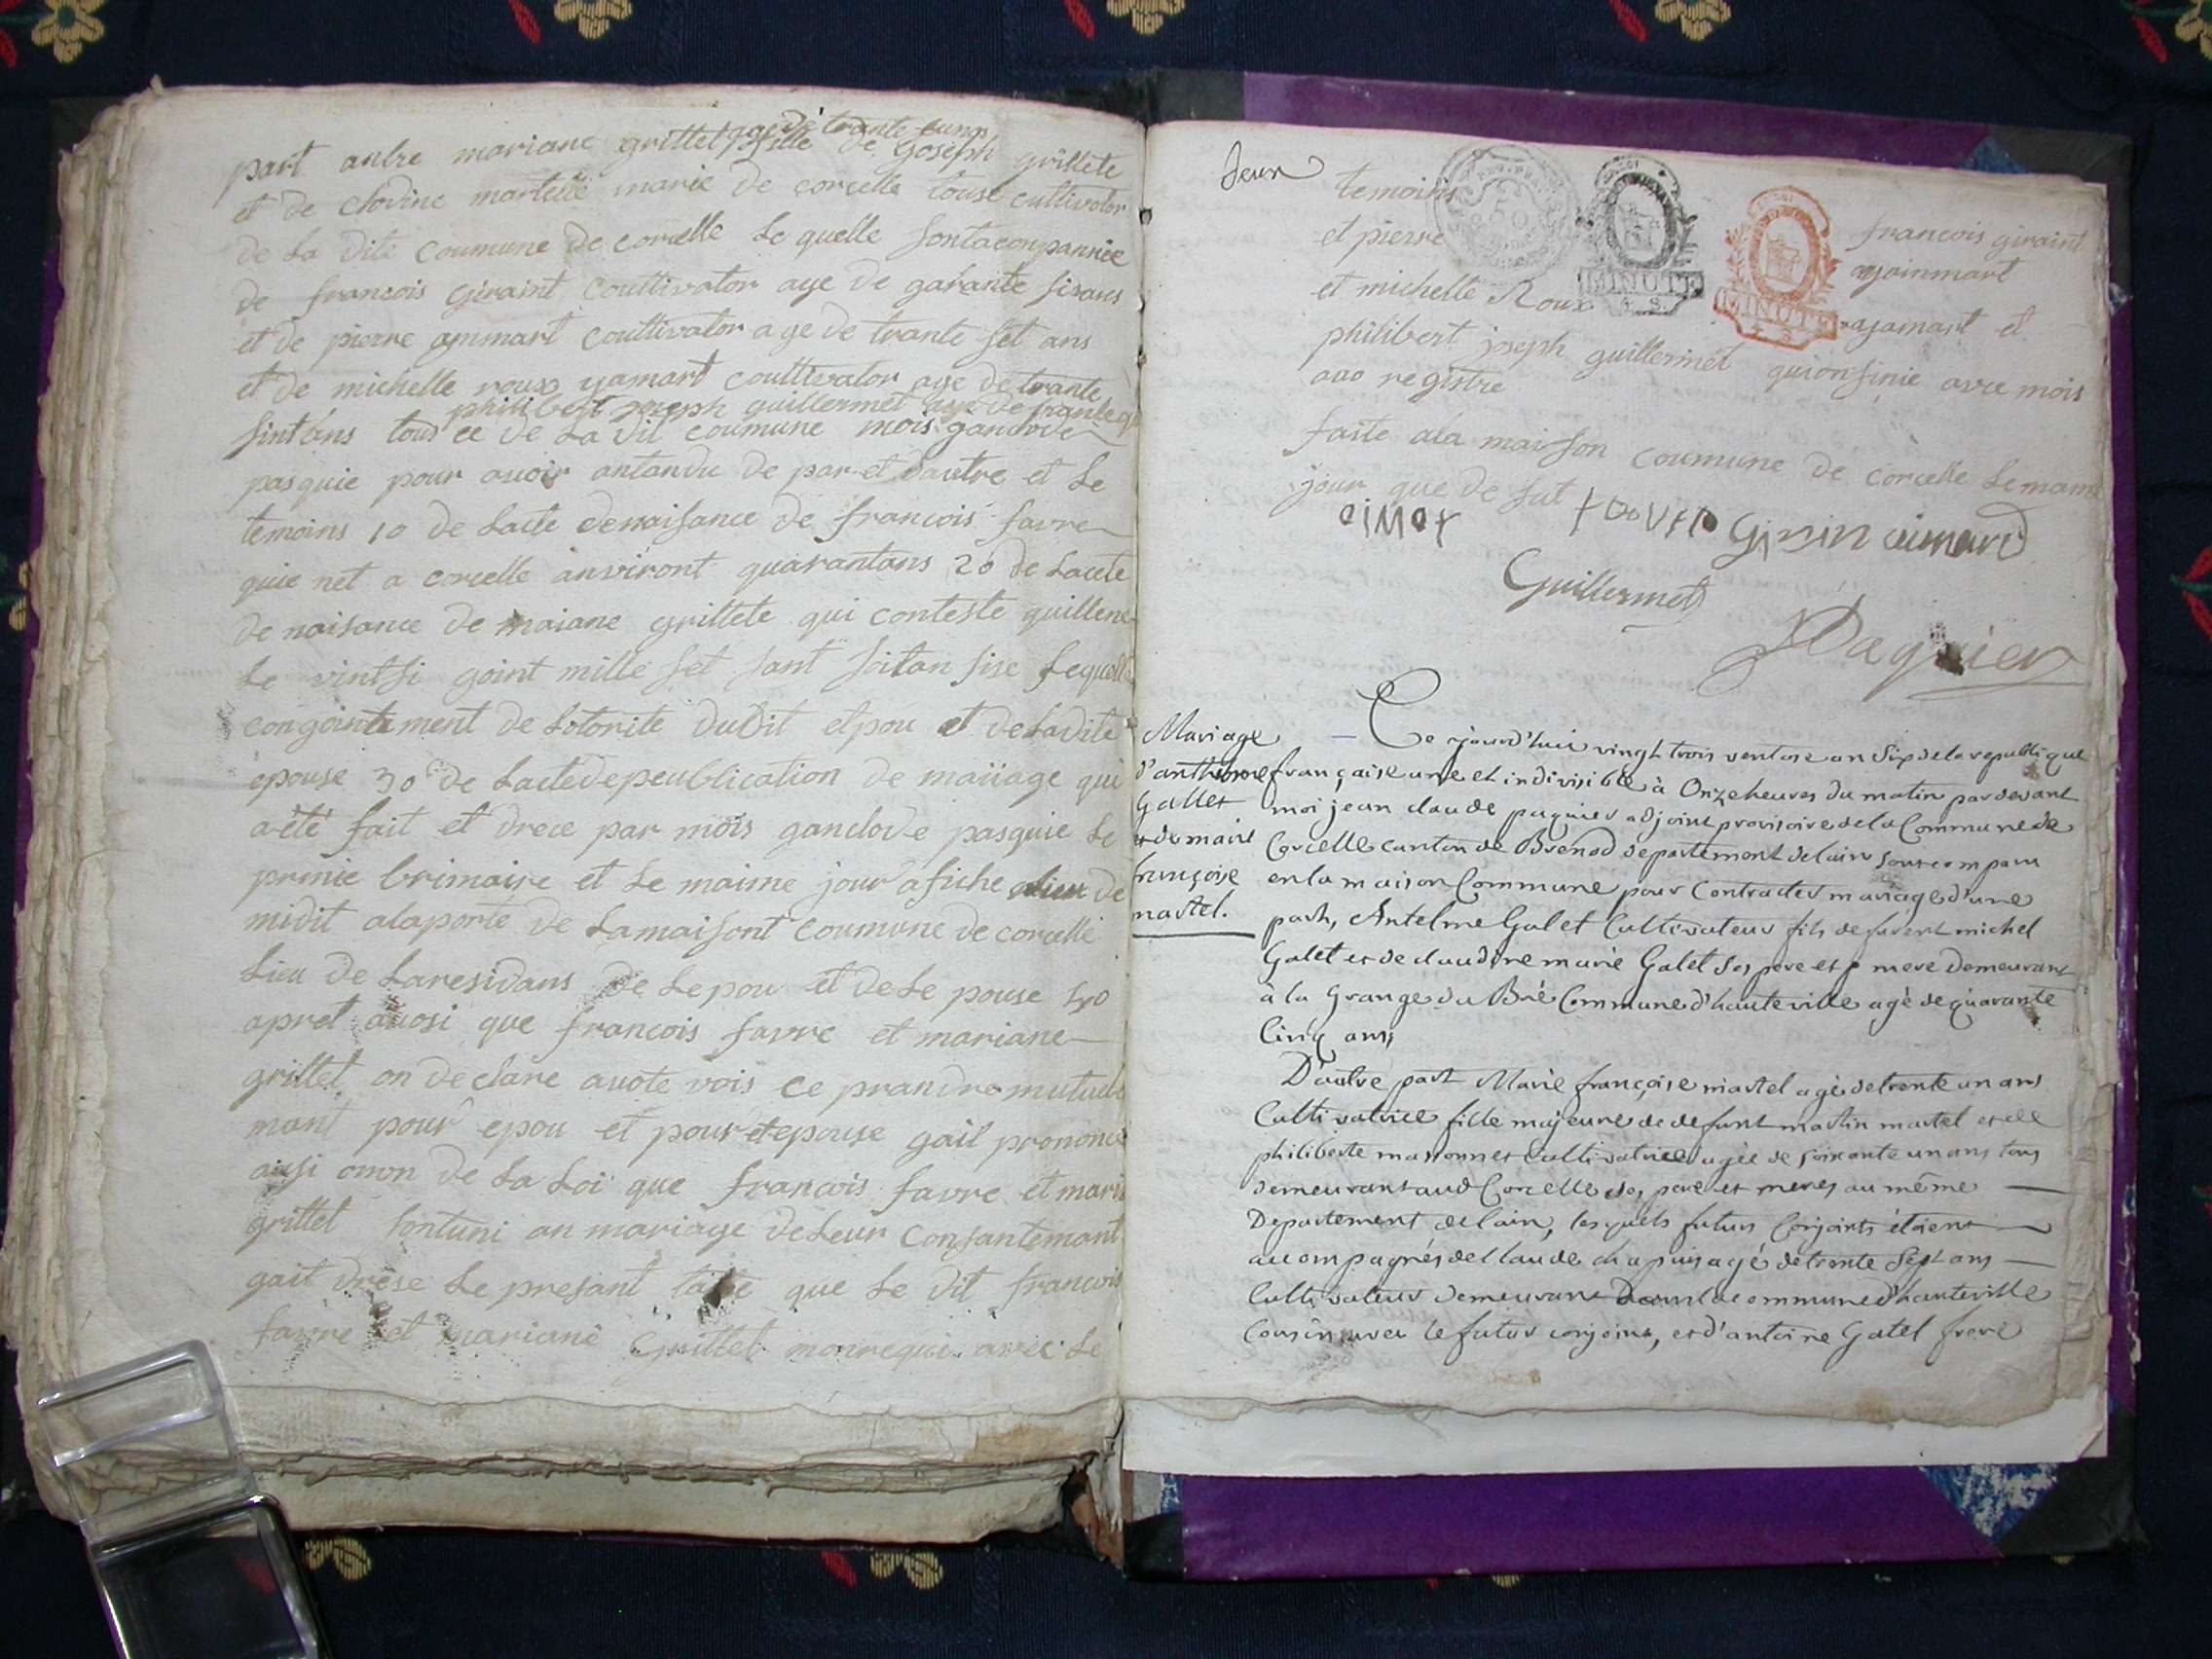 part autre mariane grittet fille de Goseph grittete
age de trante huns
et de clodine martelle marie de corcelle touse cultivator
de la dite coumune de corcelle le quelle sontaconpannice
de francois giraint couttivator age de garante sisans
et de pierre ammart couttivator age de trante set ans
et de michelle roux yamart couttivator age de trante
philibert joseph guillermet age de trante
sintans tous ce de la dit coumune mois ganclode
pasquie pour avoir antandu de par et dautre et le
temoins 10 de lacte denaisance de francois favre
quie net a corcelle anviront quarantans 20 de lacte
de naisance de maiane grittete qui conteste quillene
le vintsi goint mille set sant soitan sise lequelle
congointement de lotorite dudit etpou et deladite
epouse 30 de lactedepeublication de maiiage qui
a été fait et drece par mois ganclode pasquie le
prinie brimaire et le maime jour afiche alieu de
midit alaporte de lamaisont coumune de corcelle
lieu de laresidans de lepou et dele pouse 40
apret auosi que francois favre et mariane
grittet on declare auote vois ce prandre mutuele
mant pour epou et pour etepouse gail prononce
aisi onon de la loi que francois favre et marie
grittet sontuni an mariage deleur consantemant
gait drese le presant lacte que le dit francois
favre et mariane Grittet manrequi avec le
deux temoins francois giraint
et pierre ajoinmart
et michelle Roux ajamart et
philibert joseph guillermet quionsinie avec mois
aao registre
faite ala maison coumune de corcelle lemame
jour que de sut
Girin aimard
Guillermet
Paquier
Mariage
d'anthelme
Gallet
et de marie
françoise
martel.
Ce ejourd'huié vingt trois ventose an Six de la republique
française une et indivisible à Onze heures du matin pardevant
moi jean claude paquier adjoint provisoire de la Commune de
Corcelle canton de Brenod departement de lain sont comparu
en la maison Commune pour Contracter mariage d'une
part, Antelme Galet Cultivateur fils de feu michel
Galet et de claudine marie Galet ses pere et mere demeurant
à la Grange du Bré Commune d'hauteville agé de quarante
Cinq ans,
D'autre part Marie françoise martel agé de trente un ans
Cultivatrice fille majeure de defunt martin martel et de
philiberte massonnet Cultivatrice agée de soixante un ans tous
demeurants aud Corcelle ses pere et meres au même
Departement de lain, lesquels futurs Conjoints étoient
accompagnés de Claude chapuis agé de trente Sept ans
Cultivateur demeurant Dans la commune d'hauteville
Cousin avec le futur conjoint, et d'antoine Gatel frere